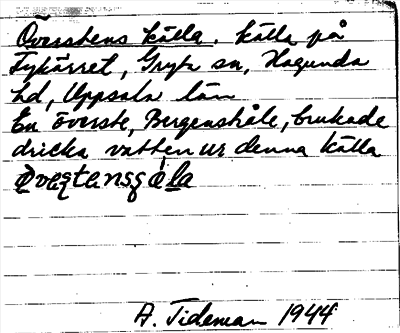 Överstens källa, källa på
Fykärret, Gryta sn, Hagunda
hd, Uppsala län
En överste, Bergenstråle, brukade
dricka vatten ur denna källa
A. Tideman 1944